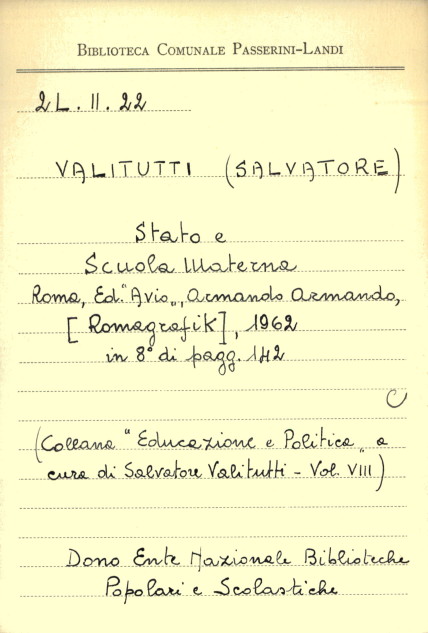 BIBLIOTECA COMUNALE PASSERINI-LANDI
2L.II.22
VALITUTTI (SALVATORE)
Stato e
Scuola Materna
Roma, Ed. "Avio„, Armando Armando,
[Romagrafik], 1962
in 8° di pagg. 142
C
(Collana "Educazione e Politica„ a
cura di Salvatore Valitutti - Vol. VIII)
Dono Ente Nazionale Biblioteche
Popolari e Scolastiche